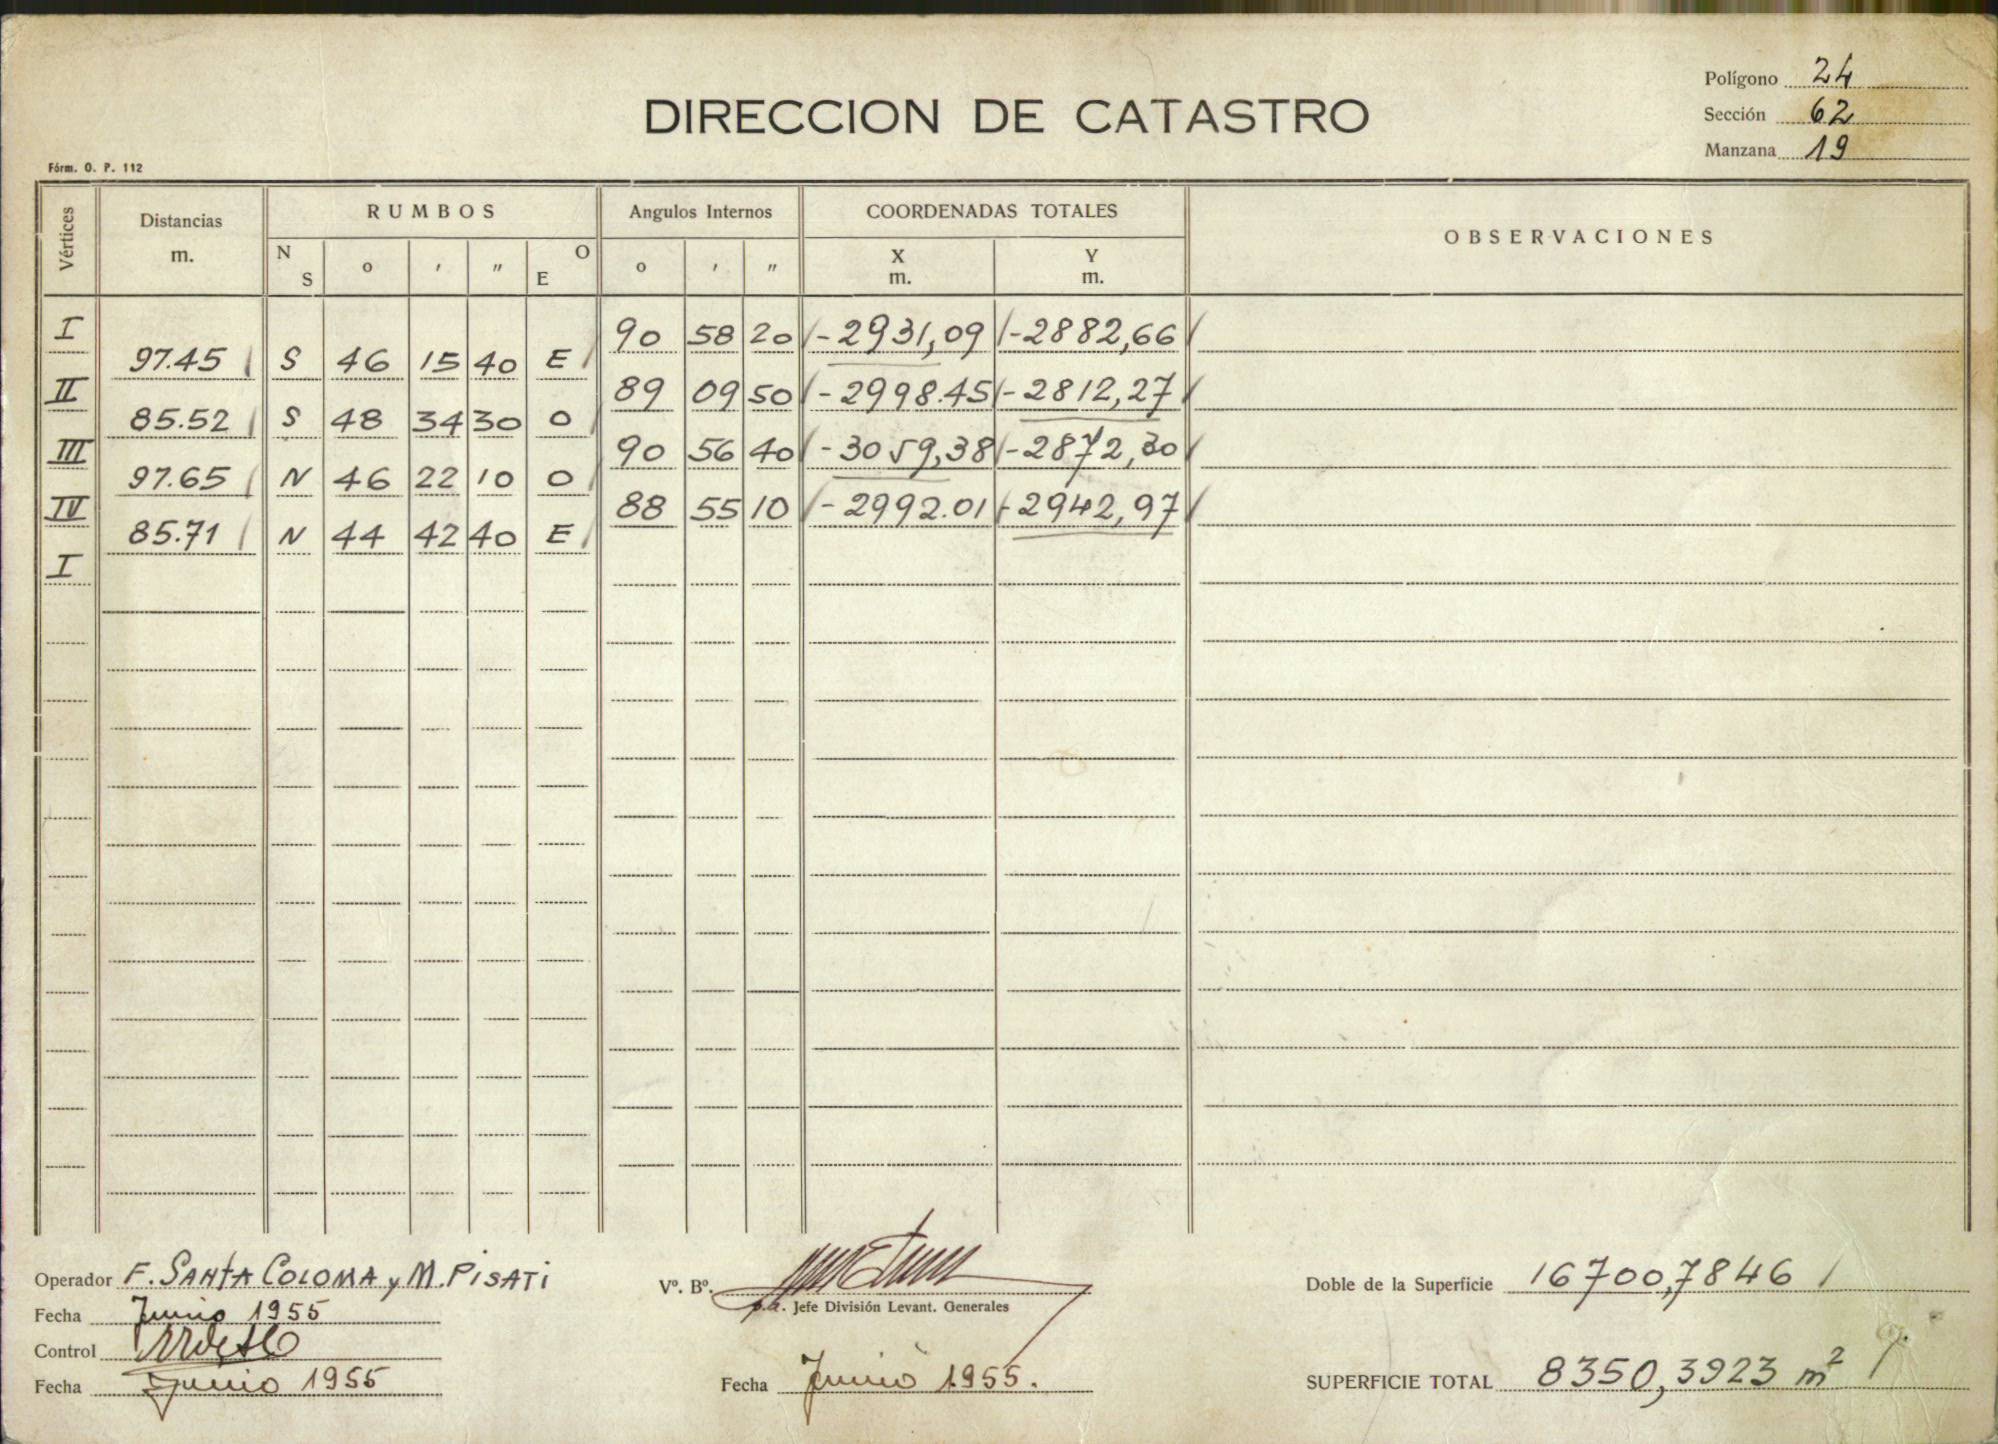 Polígono 24
DIRECCION DE CATASTRO
Sección 62
Manzana 19
Fórm. O. P. 112
Vértices Distancias m. RUMBOS N S o ' " O E Angulos Internos o ' " COORDENADAS TOTALES X m. Y m. OBSERVACIONES
I 90 58 20 -2931,09 -2882,66
97.45 S 46 15 40 E
II 89 09 50 -2998.45 -2812,27
85.52 S 48 34 30 O
III 90 56 40 -3059,38 -2872,30
97.65 N 46 22 10 O
IV 88 55 10 -2992.01 -2942,97
85.71 N 44 42 40 E
I
Operador F. SANTA COLOMA y M. PISATI
Vº. Bº.
p.a. Jefe División Levant. Generales
Doble de la Superficie 16700,7846
Fecha Junio 1955
Control
Fecha Junio 1955
Fecha Junio 1955.
SUPERFICIE TOTAL 8350,3923 m²